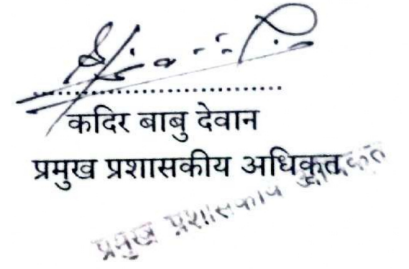 ..............................
कदिर बाबु देवान
प्रमुख प्रशासकीय अधिकृत
प्रमुख प्रशासकीय अधिकृत